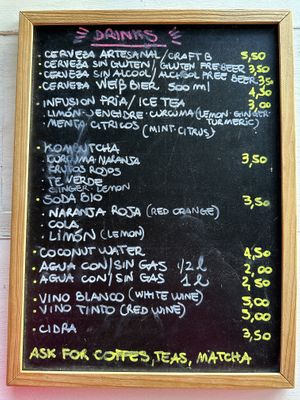 DRINKS
• CERVEZA ARTESANAL / CRAFT B 5,50
• CERVEZA SIN GLUTEN / GLUTEN FREE BEER 3,50
• CERVEZA SIN ALCOHOL / ALCOHOL FREE BEER 3,50
• CERVEZA WEIßBIER 500 ml 4,50
• INFUSION FRÍA / ICE TEA 3,00
• LIMÓN - JENGIBRE - CURCUMA (LEMON - GINGER
TURMERIC)
• MENTA CITRICOS (MINT-CITRUS)
• KOMBUTCHA
CURCUMA NARANJA 3,50
FRUTOS ROJOS
TE VERDE
GINGER LEMON
• SODA BIO 3,50
• NARANJA ROJA (RED ORANGE)
• COLA
• LIMÓN (LEMON)
• COCONUT WATER 4,50
• AGUA CON/SIN GAS 1/2 l 2,00
• AGUA CON/SIN GAS 1 l 2,50
• VINO BLANCO (WHITE WINE) 5,00
• VINO TINTO (RED WINE) 5,00
• CIDRA 3,50
ASK FOR COFFES, TEAS, MATCHA